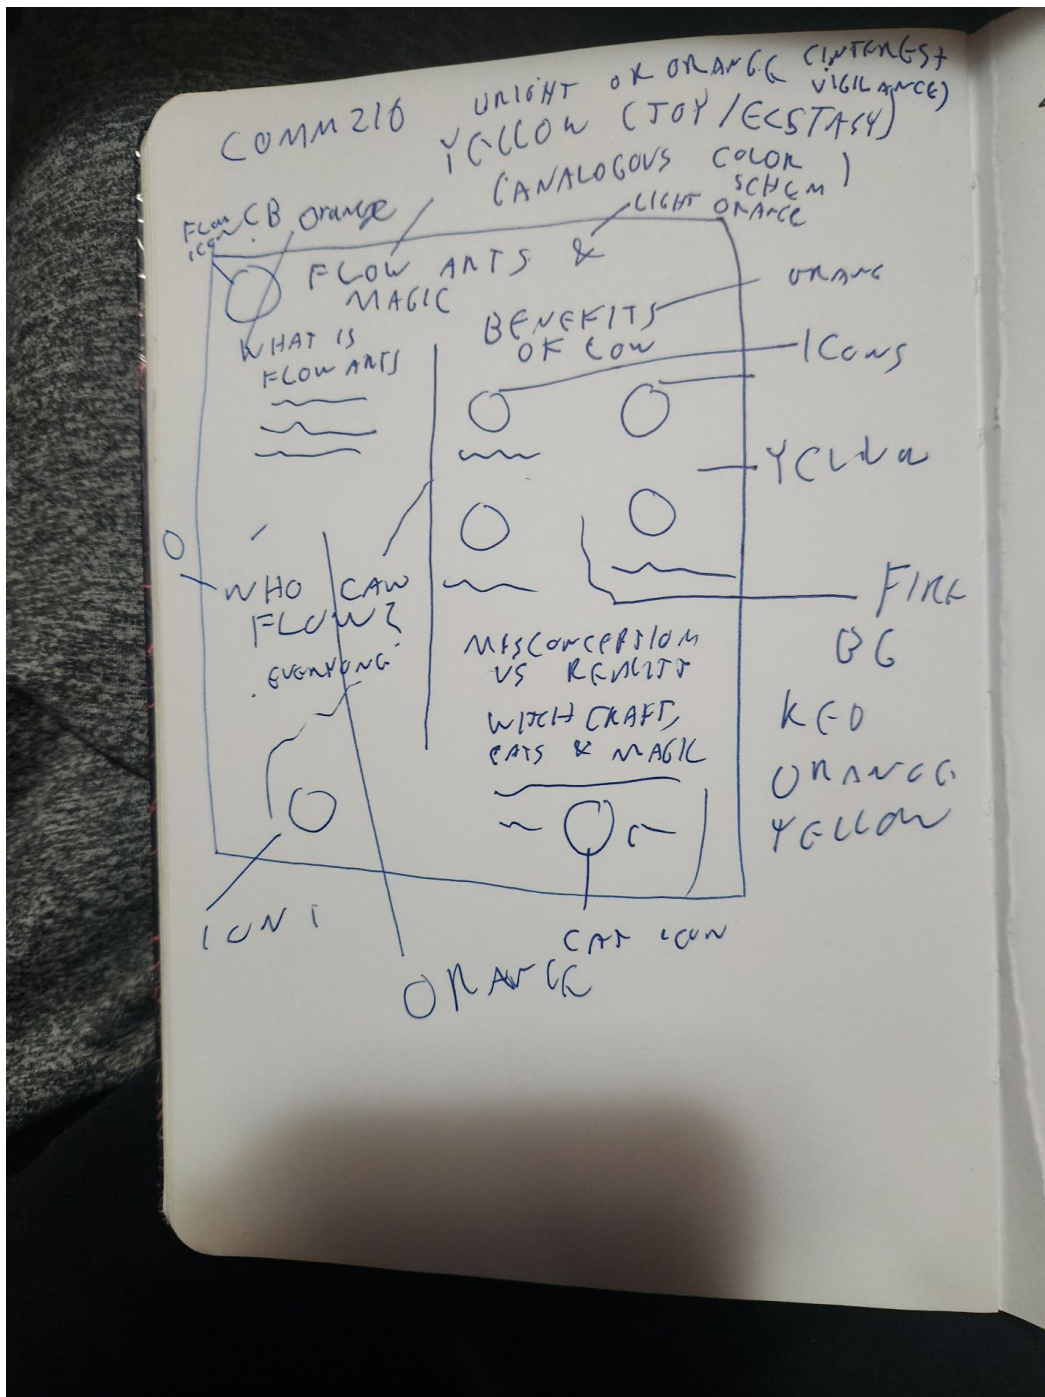 COMM210
URIGHT OR ORANGE (INTEREST
VIGILANCE)
YELLOW (JOY/ECSTASY)
(ANALOGOUS COLOR
SCHEM)
FLOW
ICON
Orange
LIGHT ORANGE
FLOW ARTS &
MAGIC
ORANG
WHAT IS
FLOW ARTS
BENEFITS
OF LOW
ICONS
YELLOW
WHO CAN
FLOW?
EVERYONE
FIRE
BG
RED
ORANGE
YELLOW
MISCONCEPTIOM
VS REALITY
WITCHCRAFT,
CATS & MAGIC
ICON
CAT ICON
ORANGE